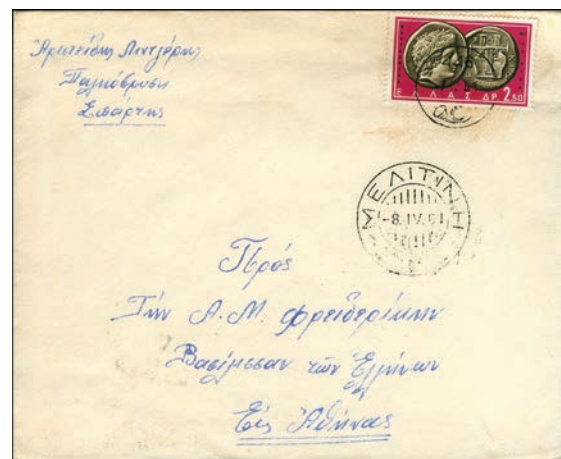 Ἀριστείδης
Παλιόβρυση
Σπάρτης
ΕΛΛΑΣ ΔΡ. 2,50
ΜΕΛΙΤΙΝΗ
-8.IV.61
Πρός
Τήν Α.Μ. Φρειδερίκην
Βασίλισσαν τῶν Ἑλλήνων
Εἰς Ἀθήνας